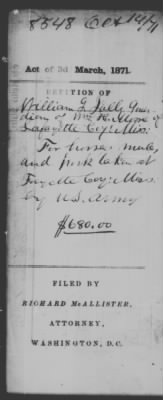 8548 Oct 14/71
Act of 3d March, 1871.
PETITION OF
William G. Jully Guar
dian of Wm H.
Lafayette Coy Miss.
For horses, mules,
and pork taken at
Fayette Coy Miss
by U.S. Army
$680.00
FILED BY
RICHARD McALLISTER,
ATTORNEY,
WASHINGTON, D.C.